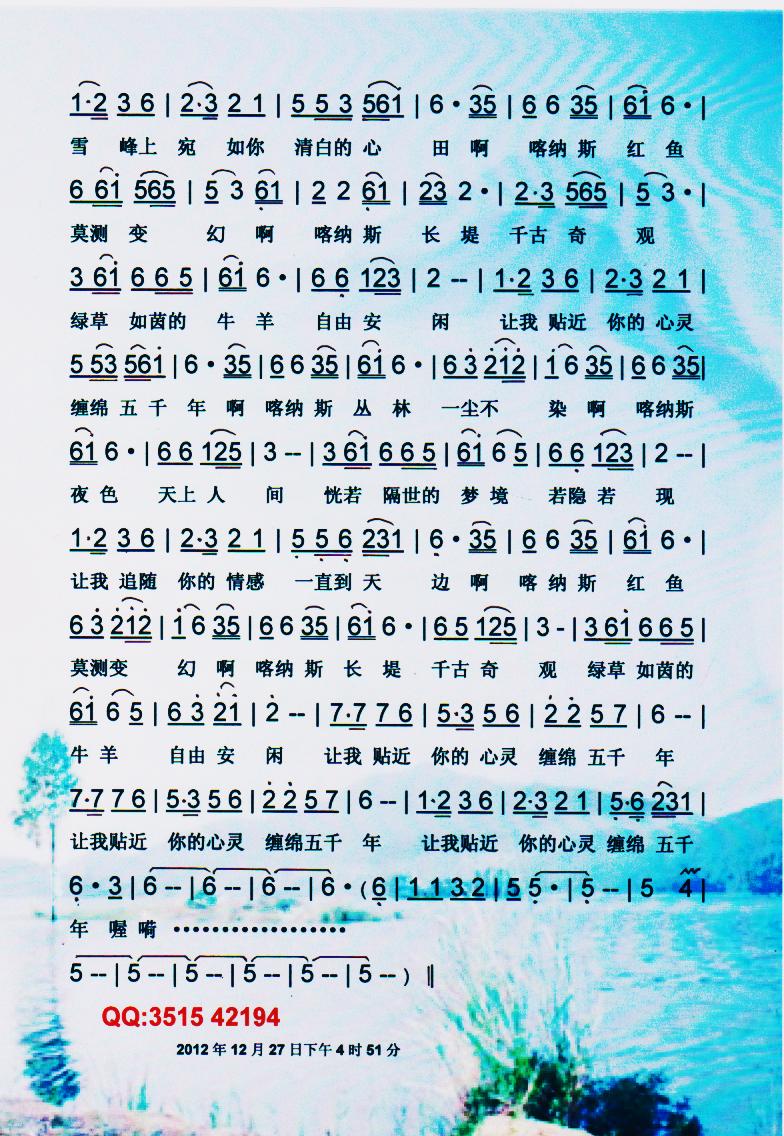 1·2 3 6 | 2·3 2 1 | 5 5 3 5 6 1 | 6 · 3 5 | 6 6 3 5 | 6 1 6 · |
雪 峰上 宛 如你 清白的 心 田 啊 喀纳 斯 红 鱼
6 6 1 5 6 5 | 5 3 6 1 | 2 2 6 1 | 2 3 2 · | 2·3 5 6 5 | 5 3 · |
莫测 变 幻 啊 喀纳 斯 长 堤 千古 奇 观
3 6 1 6 6 5 | 6 1 6 · | 6 6 1 2 3 | 2 -- | 1·2 3 6 | 2·3 2 1 |
绿草 如茵的 牛 羊 自由 安 闲 让我 贴近 你的 心灵
5 5 3 5 6 1 | 6 · 3 5 | 6 6 3 5 | 6 1 6 · | 6 3 2 1 2 | 1 6 3 5 | 6 6 3 5 |
缠绵 五 千 年 啊 喀纳 斯 丛 林 一尘不 染 啊 喀纳斯
6 1 6 · | 6 6 1 2 5 | 3 -- | 3 6 1 6 6 5 | 6 1 6 5 | 6 6 1 2 3 | 2 -- |
夜 色 天上 人 间 恍若 隔世的 梦 境 若隐 若 现
1·2 3 6 | 2·3 2 1 | 5 5 6 2 3 1 | 6 · 3 5 | 6 6 3 5 | 6 1 6 · |
让我 追随 你的 情感 一直到 天 边 啊 喀 纳 斯 红 鱼
6 3 2 1 2 | 1 6 3 5 | 6 6 3 5 | 6 1 6 · | 6 5 1 2 5 | 3 - | 3 6 1 6 6 5 |
莫测变 幻 啊 喀纳 斯 长 堤 千古 奇 观 绿草 如茵的
6 1 6 5 | 6 3 2 1 | 2 -- | 7·7 7 6 | 5·3 5 6 | 2 2 5 7 | 6 -- |
牛 羊 自由 安 闲 让我 贴近 你的 心灵 缠绵 五千 年
7·7 7 6 | 5·3 5 6 | 2 2 5 7 | 6 -- | 1·2 3 6 | 2·3 2 1 | 5·6 2 3 1 |
让我贴近 你的心灵 缠绵五千 年 让我贴近 你的心灵 缠绵 五千
6 · 3 | 6 -- | 6 -- | 6 -- | 6 · ( 6 | 1 1 3 2 | 5 5 · | 5 -- | 5 4 |
年 喔 嗬 ··················
5 -- | 5 -- | 5 -- | 5 -- | 5 -- | 5 -- ) ‖
QQ:3515 42194
2012 年 12 月 27 日下午 4 时 51 分